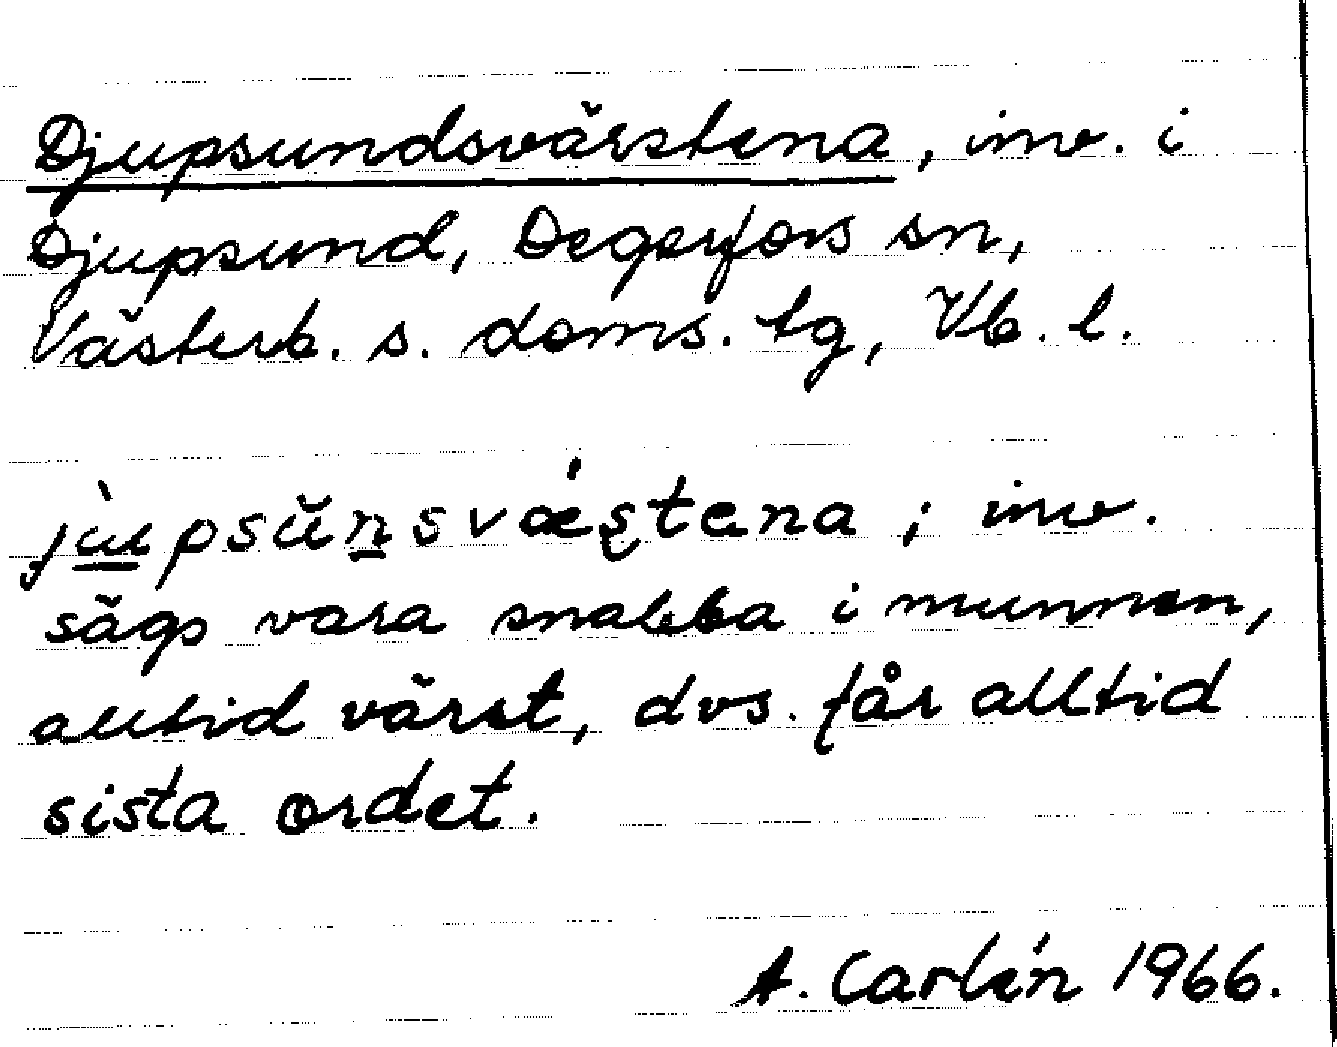 Djupsundsvärstena, inv. i
Djupsund, Degerfors sn,
Västerb. s. doms. tg, Vb. l.
jùupsŭnsvǽʂtena; inv.
sägs vara snabba i munnen,
alltid värst, dvs. får alltid
sista ordet.
A. Carlén 1966.